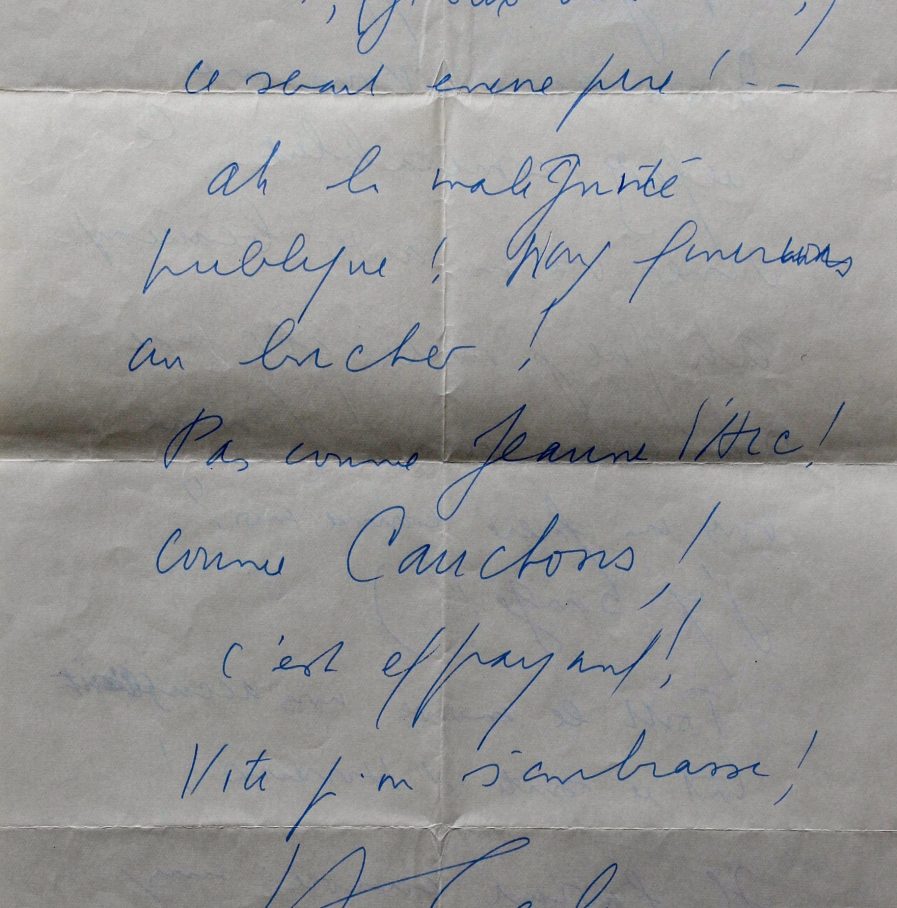 ce serait encore pire ! - -
ah la malignité
publique ! Nous finirons
au bucher !
Pas comme Jeanne d'Arc !
comme Cauchons !
c'est effrayant !
Vite qu'on s'embrasse !